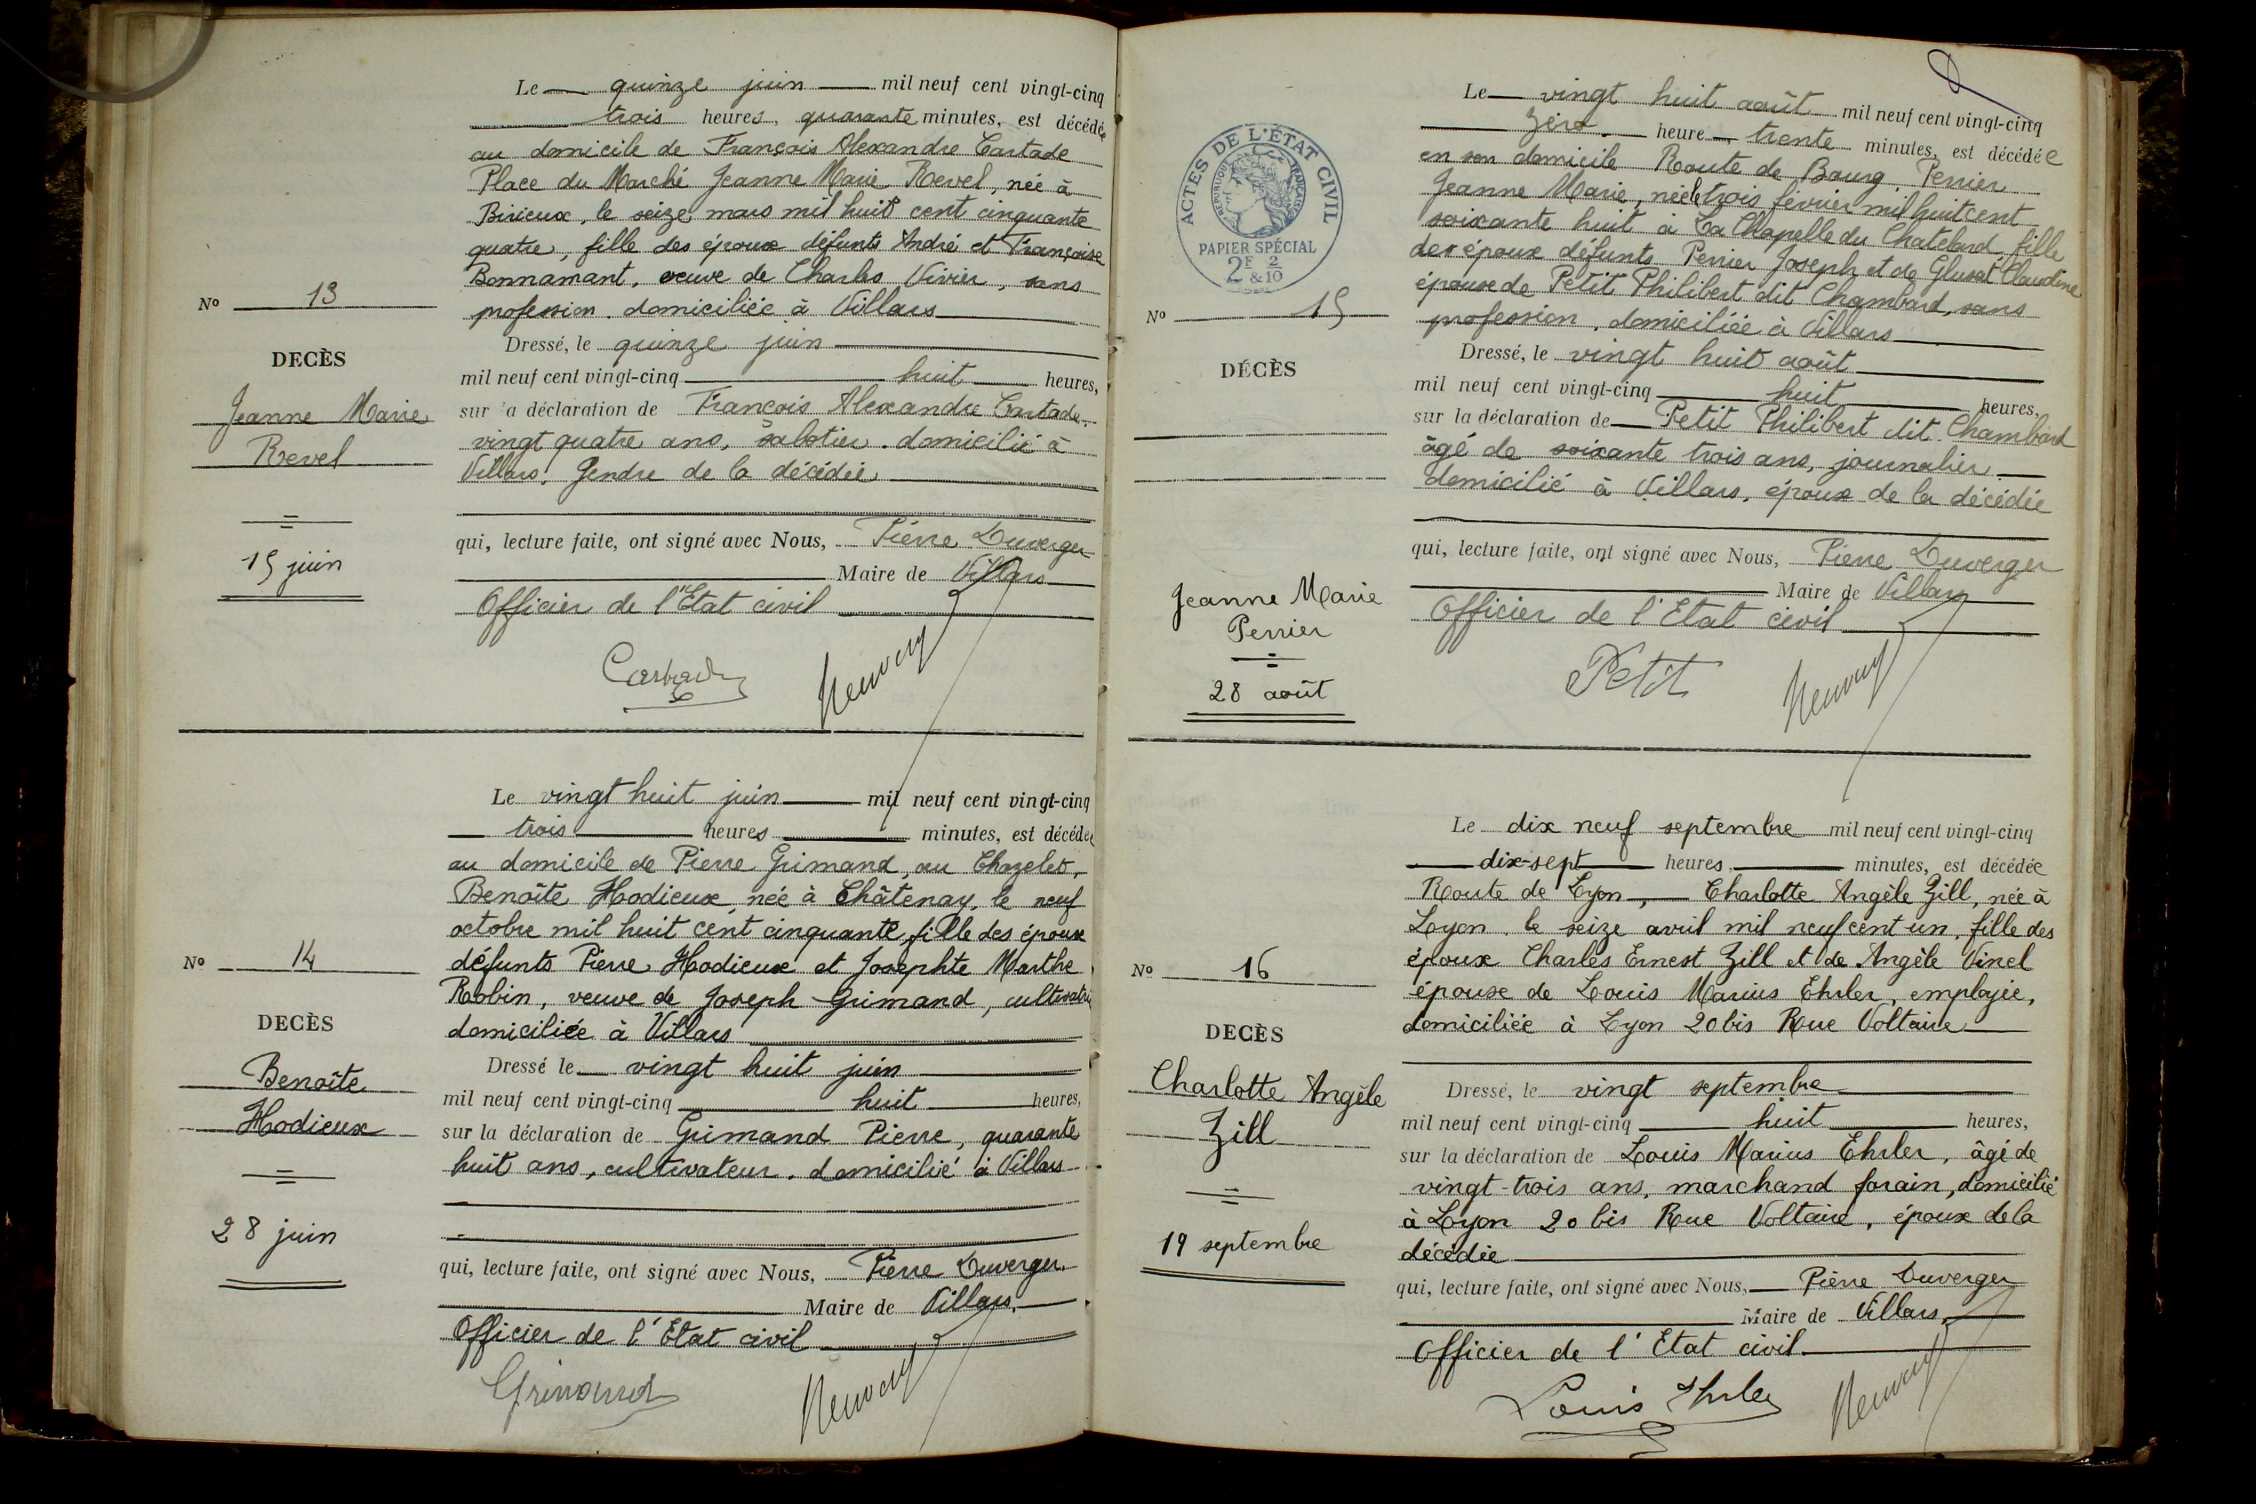 Le quinze juin mil neuf cent vingt-cinq
trois heures, quarante minutes, est décédée
au domicile de François Alexandre Cartade
Place du Marché Jeanne Marie Revel, née à
Birieux, le seize mars mil huit cent cinquante
quatre, fille des époux défunts André et Françoise
Bonnamant, veuve de Charles Vivier, sans
profession. domiciliée à Villars
No 13
DECÈS
Jeanne Marie
Revel
15 juin
Dressé, le quinze juin
mil neuf cent vingt-cinq huit heures,
sur la déclaration de François Alexandre Cartade,
vingt quatre ans, sabotier. domicilié à
Villars, Gendre de la décédée
qui, lecture faite, ont signé avec Nous, Pierre Duverger
Maire de Villars
Officier de l'Etat civil
Le vingt huit juin mil neuf cent vingt-cinq
trois heures minutes, est décédée
au domicile de Pierre Grimand, au Chazelet,
Benoîte Hodieux, née à Châtenay, le neuf
octobre mil huit cent cinquante, fille des époux
défunts Pierre Hodieux et Josephte Marthe
Robin, veuve de Joseph Grimand, cultivatrice
domiciliée à Villars
No 14
DECÈS
Benoîte
Hodieux
28 juin
Dressé le vingt huit juin
mil neuf cent vingt-cinq huit heures,
sur la déclaration de Grimand Pierre, quarante
huit ans, cultivateur. domicilié à Villars
qui, lecture faite, ont signé avec Nous, Pierre Duverger
Maire de Villars,
Officier de l'Etat civil
Grimand
ACTES DE L'ÉTAT CIVIL
RÉPUBLIQUE FRANÇAISE
PAPIER SPÉCIAL
2F 2/10
& 10
Le vingt huit août mil neuf cent vingt-cinq
zéro heure trente minutes, est décédée
en son domicile Route de Bourg. Perrier
Jeanne Marie, née le trois février mil huit cent
soixante huit à La Chapelle du Chatelard, fille
des époux défunts Perrier Joseph et de Glusat Claudine
épouse de Petit Philibert dit Chambard, sans
profession, domiciliée à Villars
No 15
DÉCÈS
Jeanne Marie
Perrier
28 août
Dressé, le vingt huit août
mil neuf cent vingt-cinq huit heures,
sur la déclaration de Petit Philibert dit Chambard
âgé de soixante trois ans, journalier
domicilié à Villars, époux de la décédée
qui, lecture faite, ont signé avec Nous, Pierre Duverger
Maire de Villars
Officier de l'Etat civil
Petit
Le dix neuf septembre mil neuf cent vingt-cinq
dix-sept heures, minutes, est décédée
Route de Lyon, Charlotte Angèle Zill, née à
Lyon. le seize avril mil neuf cent un, fille des
époux Charles Ernest Zill et de Angèle Vinel
épouse de Louis Marius Ehrler, employée,
domiciliée à Lyon 20 bis Rue Voltaire
No 16
DECÈS
Charlotte Angèle
Zill
19 septembre
Dressé, le vingt septembre
mil neuf cent vingt-cinq huit heures,
sur la déclaration de Louis Marius Ehrler, âgé de
vingt-trois ans, marchand forain, domicilié
à Lyon 20 bis Rue Voltaire, époux de la
décédée
qui, lecture faite, ont signé avec Nous, Pierre Duverger
Maire de Villars,
Officier de l'Etat civil.
Louis Ehrler